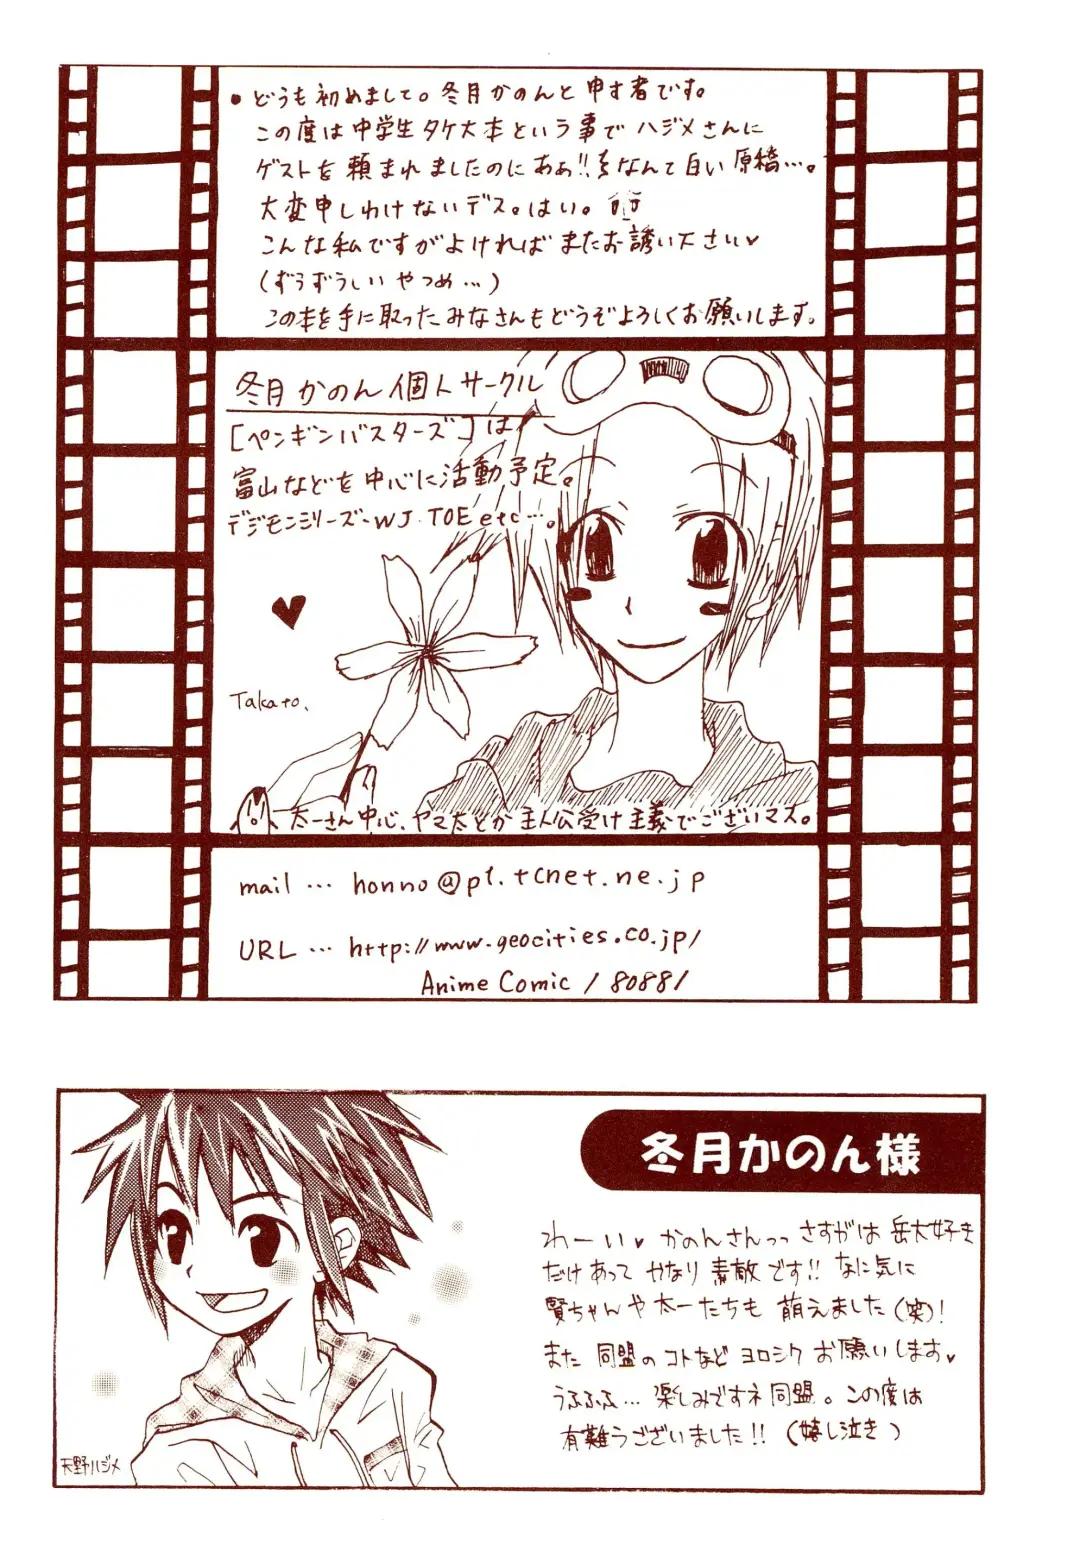 ●どうも初めまして。冬月かのんと申す者です。
この度は中学生タケ大本という事でハジメさんに
ゲストを頼まれましたのにああ!!なんて白い原稿…。
大変申しわけないデス。はい。
こんな私ですがよければまたお誘い下さい♥
(ずうずうしいやつめ…)
この本を手に取ったみなさんもどうぞよろしくお願いします。
冬月かのん個人サークル
[ペンギンバスターズ]は
富山などを中心に活動予定。
デジモンシリーズ・WJ・TOE etc…。
Takato、
太一さん中心、ヤマ太とか主人公受け主義でございマス。
mail … honno@p1.tcnet.ne.jp
URL … http://www.geocities.co.jp/
AnimeComic/8088/
冬月かのん様
わーい♥かのんさんっっさすがは岳大好き
だけあってかなり素敵です!!なに気に
賢ちゃんや太一たちも萌えました(笑)!
また同盟のコトなどヨロシクお願いします♥
うふふふ…楽しみですネ同盟。この度は
有難うございました!!(嬉し泣き)
天野ハジメ